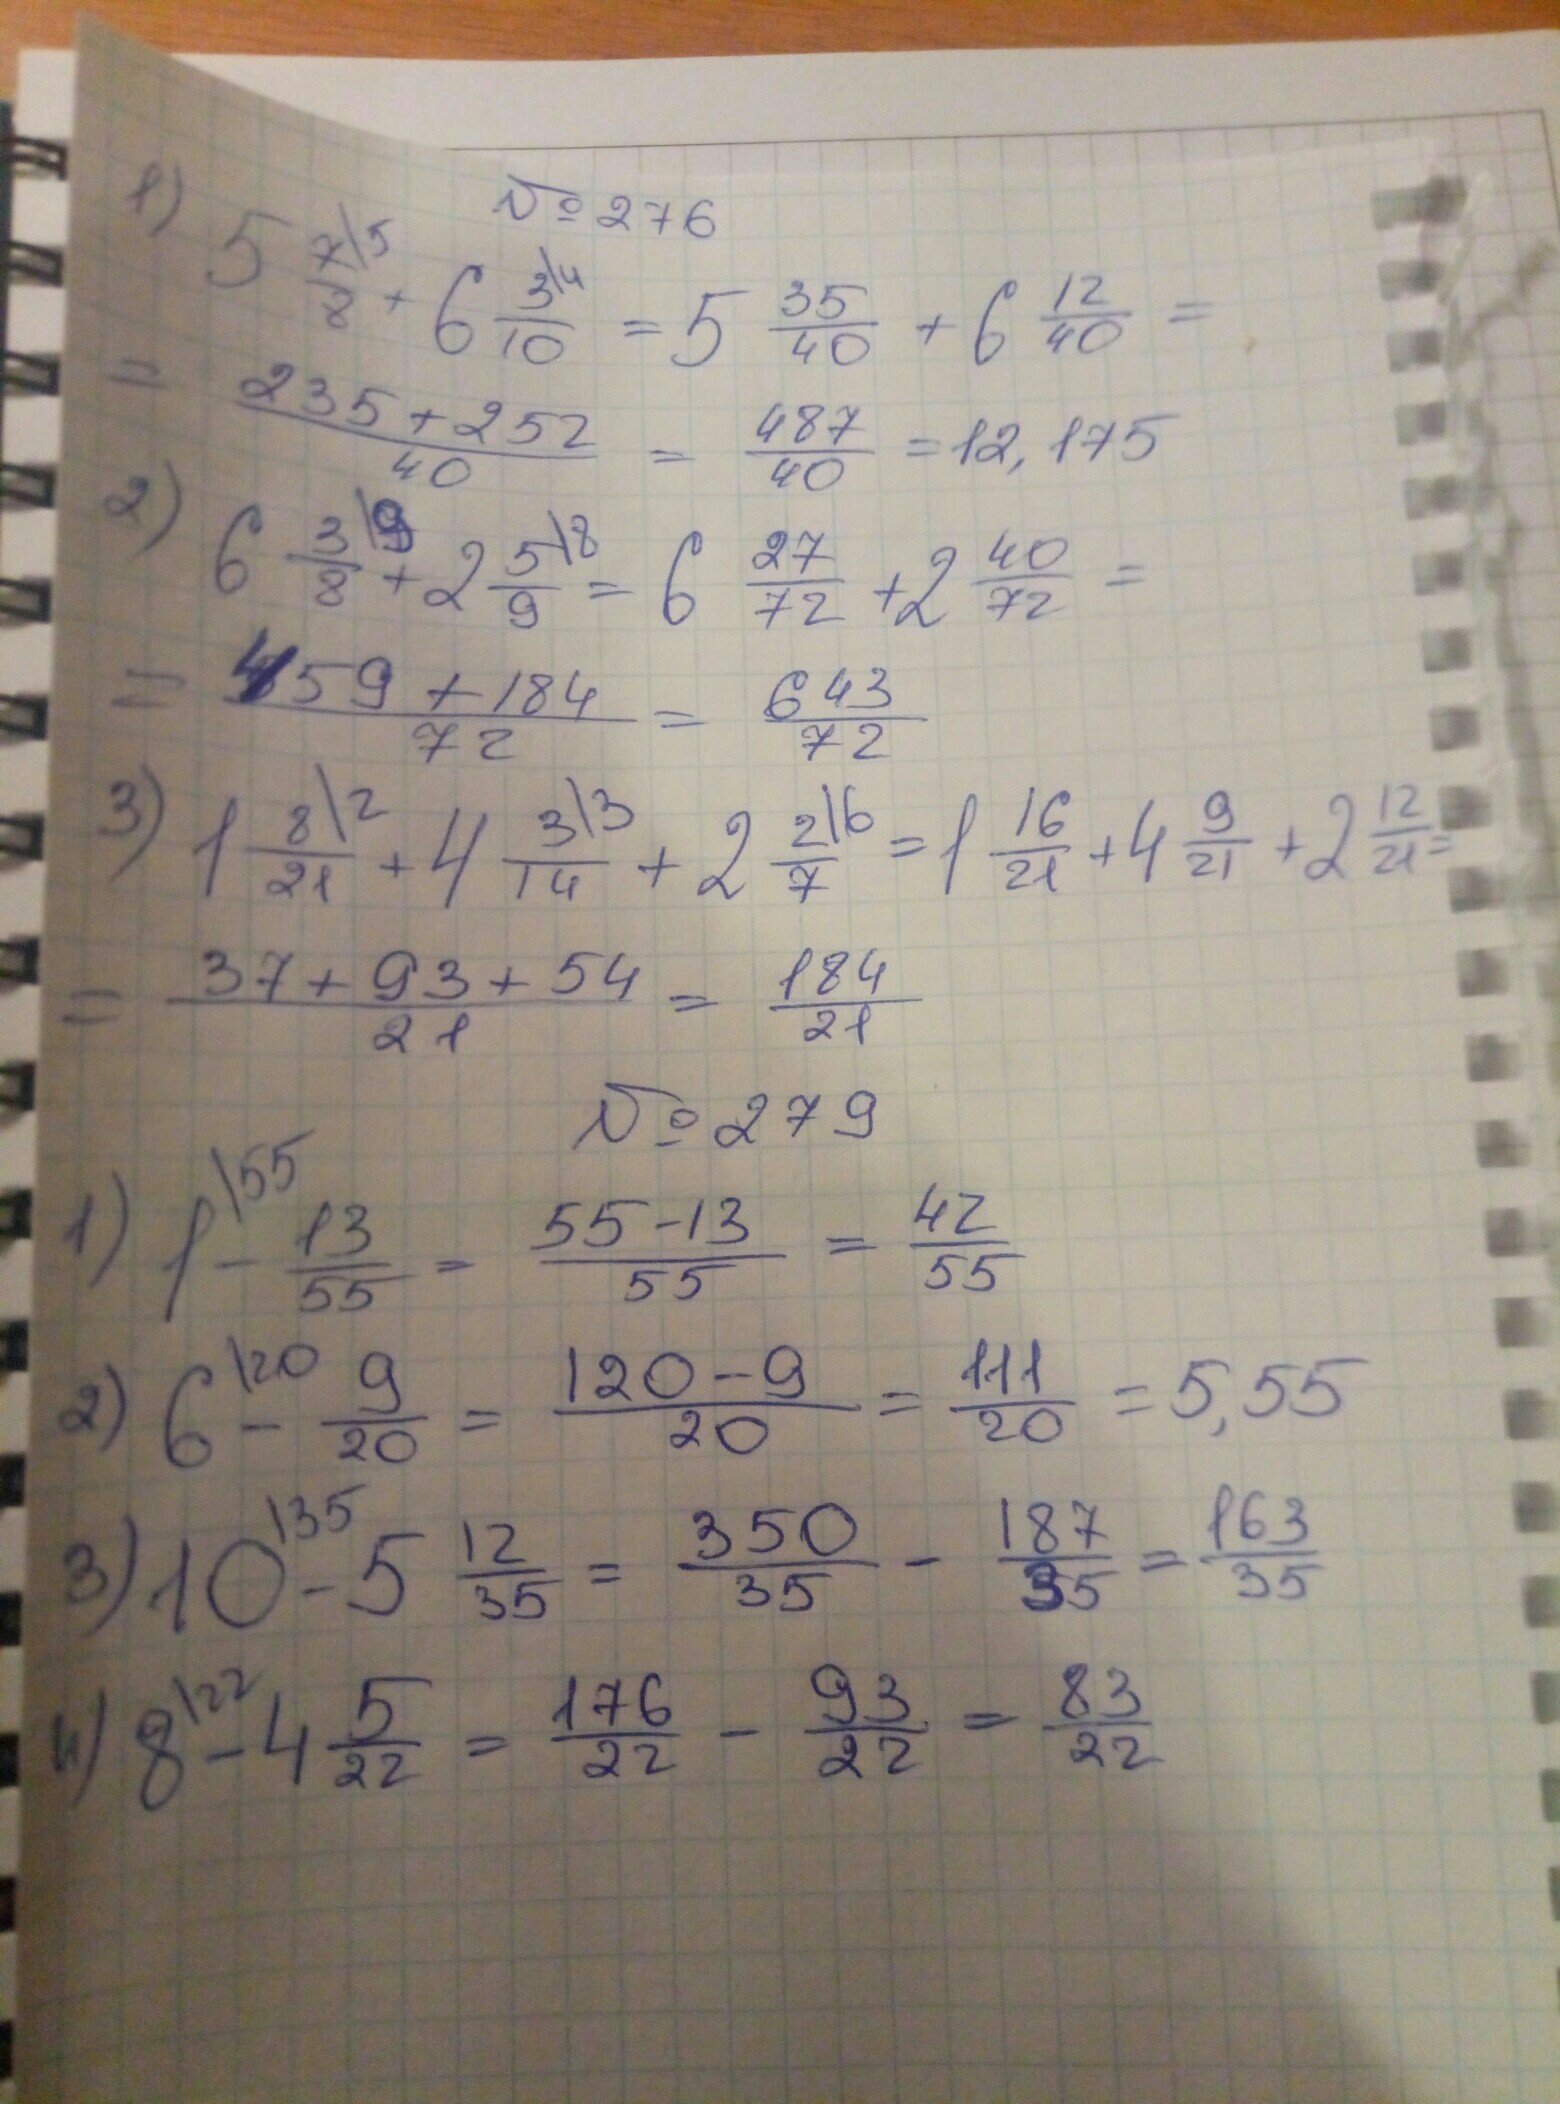 № 276
1) 5 7\5/8 + 6 3\4/10 = 5 35/40 + 6 12/40 =
= 235 + 252/40 = 487/40 = 12,175
2) 6 3\9/8 + 2 5\8/9 = 6 27/72 + 2 40/72 =
= 459 + 184/72 = 643/72
3) 1 8\2/21 + 4 3\3/14 + 2 2\6/7 = 1 16/21 + 4 9/21 + 2 12/21 =
= 37 + 93 + 54/21 = 184/21
№ 279
1) 1\55 - 13/55 = 55 - 13/55 = 42/55
2) 6\20 - 9/20 = 120 - 9/20 = 111/20 = 5,55
3) 10\35 - 5 12/35 = 350/35 - 187/35 = 163/35
4) 8\22 - 4 5/22 = 176/22 - 93/22 = 83/22